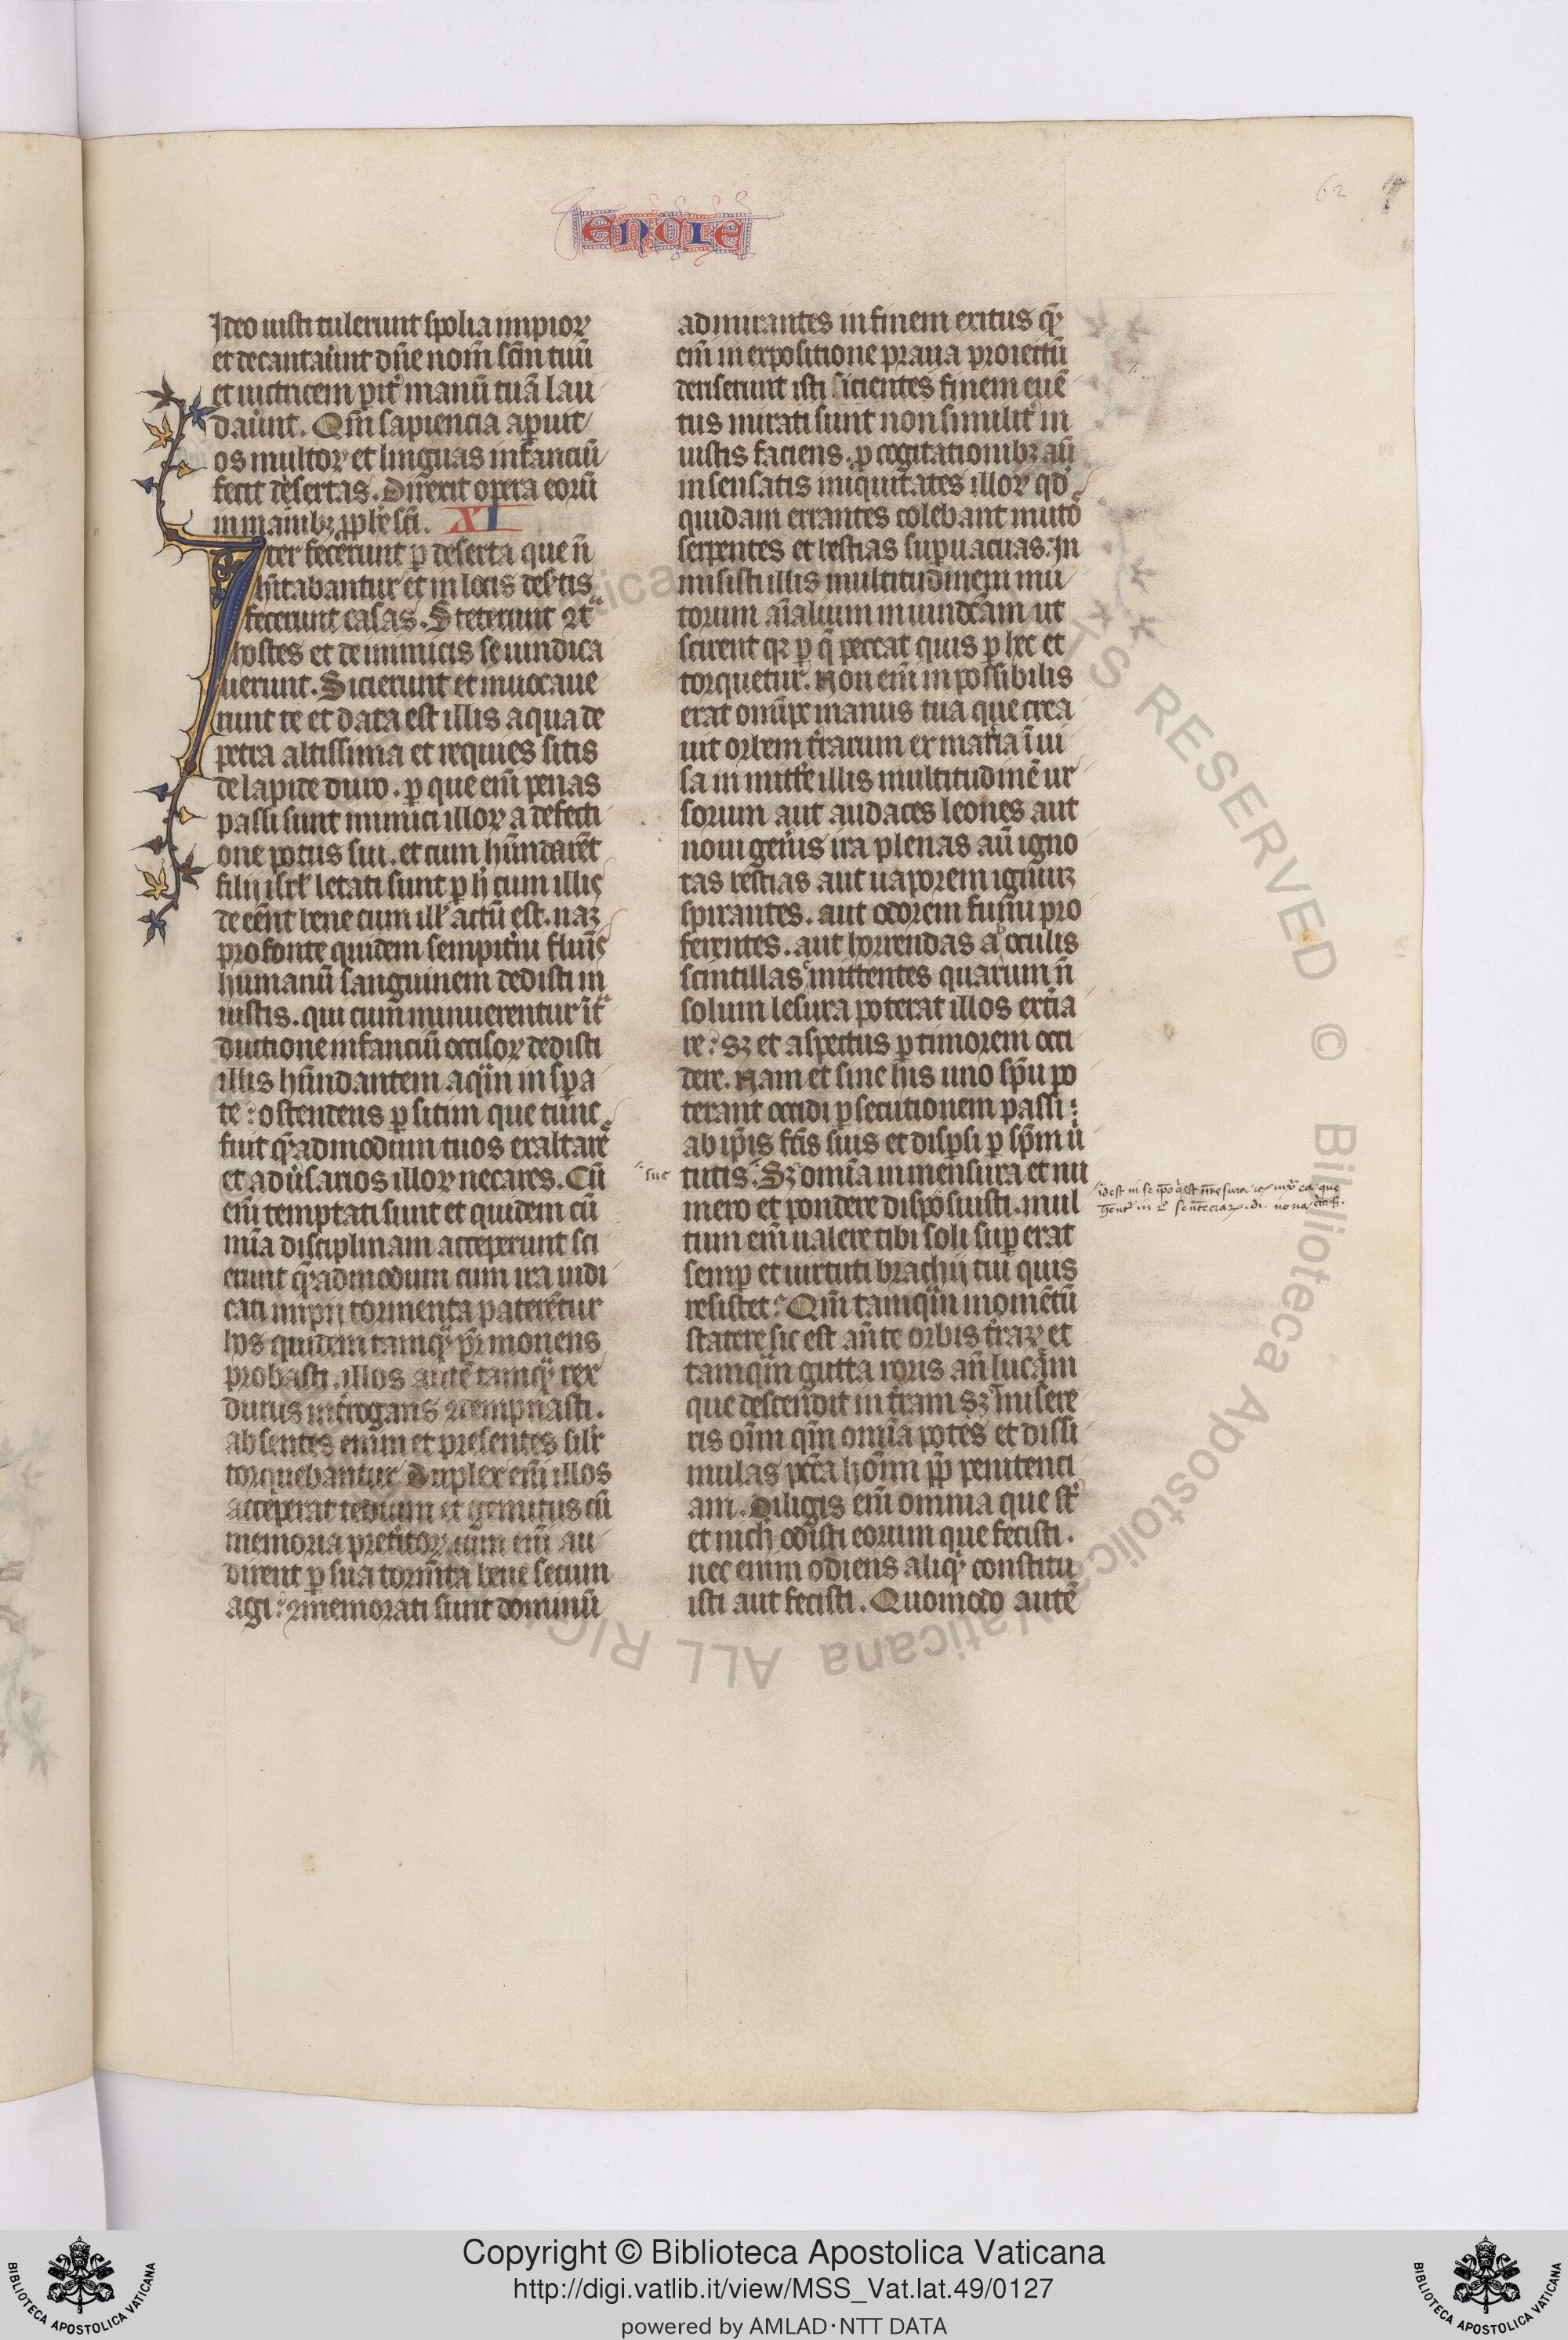 62
ENCIE
Ideo iusti tulerunt spolia impioꝝ
et decantaũunt dñe nom̃ scm̃ tuũ
et uictricem pit͛ manũ tuã lau
daũunt. Qm̃ sapiencia aꝑuit
os multoꝝ et linguas infanciũ
fecit desertas. Direxit opera eorũ
in manibꝫ ꝓph̃e sc̃i. XI
Iter fecerunt ꝑ deserta que ñ
hĩtabantur et in locis des͛tis
fecerunt casas. Steterunt ꝯt͛
hostes et de inimicis se uindica
uerunt. Sicierunt et inuocaue
runt te et data est illis aqua de
petra altissima et requies sitis
de lapide duro. ꝑ que em̃ penas
passi sunt inimici illoꝝ a defecti
one potus sui. et cum hũndarẽt
filii isrl̃ letati sunt ꝑ h̾ cum illis
deeẽnt bene cum ill͛ actũ est. naꝫ
pro fonte quidem sempit͛ni fluĩs
humanũ sanguinem dedisti in
iustis. qui cum minuerentur ĩt͛
ductione infanciũ occisoꝝ dedisti
illis hũndantem aqͣm insꝑa
te: ostendens ꝑ sitim que tunc
fuit qͣ̃admodum tuos exaltarẽ
et adũsarios illoꝝ necares. Cũ
em̃ temptati sunt et quidem cũ
mĩa disciplinam acceperunt sci
erunt qͣ̃admodum cum ira iudi
cati impij tormenta paterẽtur
hos quidem tamqͣ̃ pr̃ monens
probasti. illos autẽ tamqͣ̃ rex
durus int͛rogans ꝯdempnasti.
absentes enim et presentes silr̃
torquebantur. Duplex em̃ illos
acceperat tedium et gemitus cũ
memoria pret͛itoꝝ. cum em̃ au
dirent ꝑ sua torm̃ta bene secum
agi: ꝯmemorati sunt dominũ
admirantes in finem exitus qͣ̃
em̃ in expositione praua proiectũ
deriserunt isti sicientes finem euẽ
tus mirati sunt non similit͛ in
iustis faciens. ꝓ cogitationibꝫ aũ
insensatis iniquitates illoꝝ qd̾
quidam errantes colebant mutõ
serpentes et bestias suꝑuacuas. In
misisti illis multitudinem mu
torum aĩalium in uindc̃am ut
scirent qꝛ ꝑ q̃ peccat quis ꝑ hec et
torquetur. Non em̃ inpossibilis
erat omĩpc manus tua que crea
uit orbem t͛rarum ex mat͛ia ĩui
sa inmitt͛e illis multitudinẽ ur
sorum aut audaces leones aut
noui gen͛is ira plenas aũ igno
tas bestias aut uaporem igniuꝫ
spirantes. aut odorem fumi pro
ferentes. aut horrendas ab oculis
scintillas mittentes quarum ñ
solum lesura poterat illos ext͛ia
re: sꝫ et aspectus ꝑ timorem occi
dere. Nam et sine hiis uno sp̃u po
terant occidi ꝑsecutionem passi:
ab ip̃is fc̃is suis et disꝑsi ꝑ sp̃m ũ
tutis. Sꝫ omĩa in mensura et nu
sue
mero et pondere disposuisti. mul
tum em̃ ualere tibi soli suꝑerat
semꝑ et uirtuti brachij tui quis
resistet: Qm̃ tamqͣm momẽtũ
statere sic est añ te orbis t͛raꝝ et
tamqͣm gutta roris añ lucam̃
que descendit in t͛ram sꝫ misere
ris oĩm qm̃ omĩa potes et dissi
mulas pcc̃a hoĩm ꝓp̃ penitenci
am. Diligis em̃ omnia que st̾
et nich̾ odisti eorum que fecisti.
nec enim odiens aliqͣ̃ constitu
isti aut fecisti. Quomodo autẽ
Copyright © Biblioteca Apostolica Vaticana
http://digi.vatlib.it/view/MSS_Vat.lat.49/0127
powered by AMLAD·NTT DATA
BIBLIOTECA APOSTOLICA VATICANA
BIBLIOTECA APOSTOLICA VATICANA
ALL RIGHTS RESERVED © Biblioteca Apostolica Vaticana